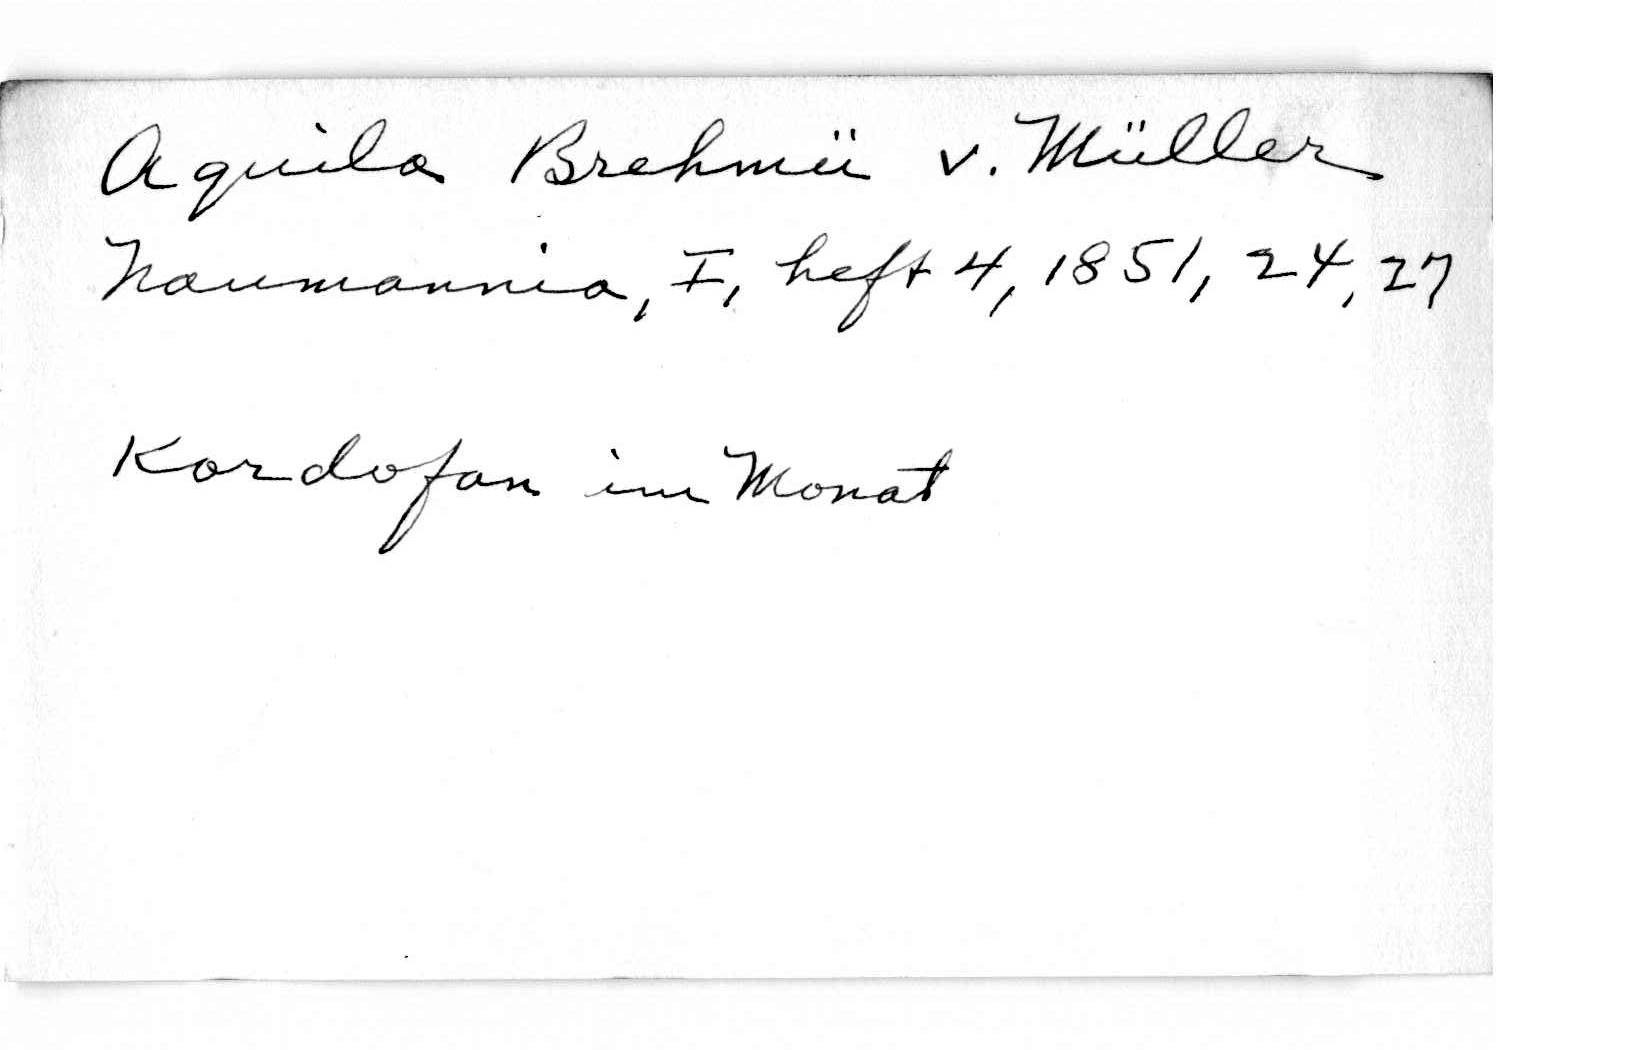 Aquila Brehmii v. Müller
Naumannia, I, heft 4, 1851, 24, 27
Kordofan im Monat